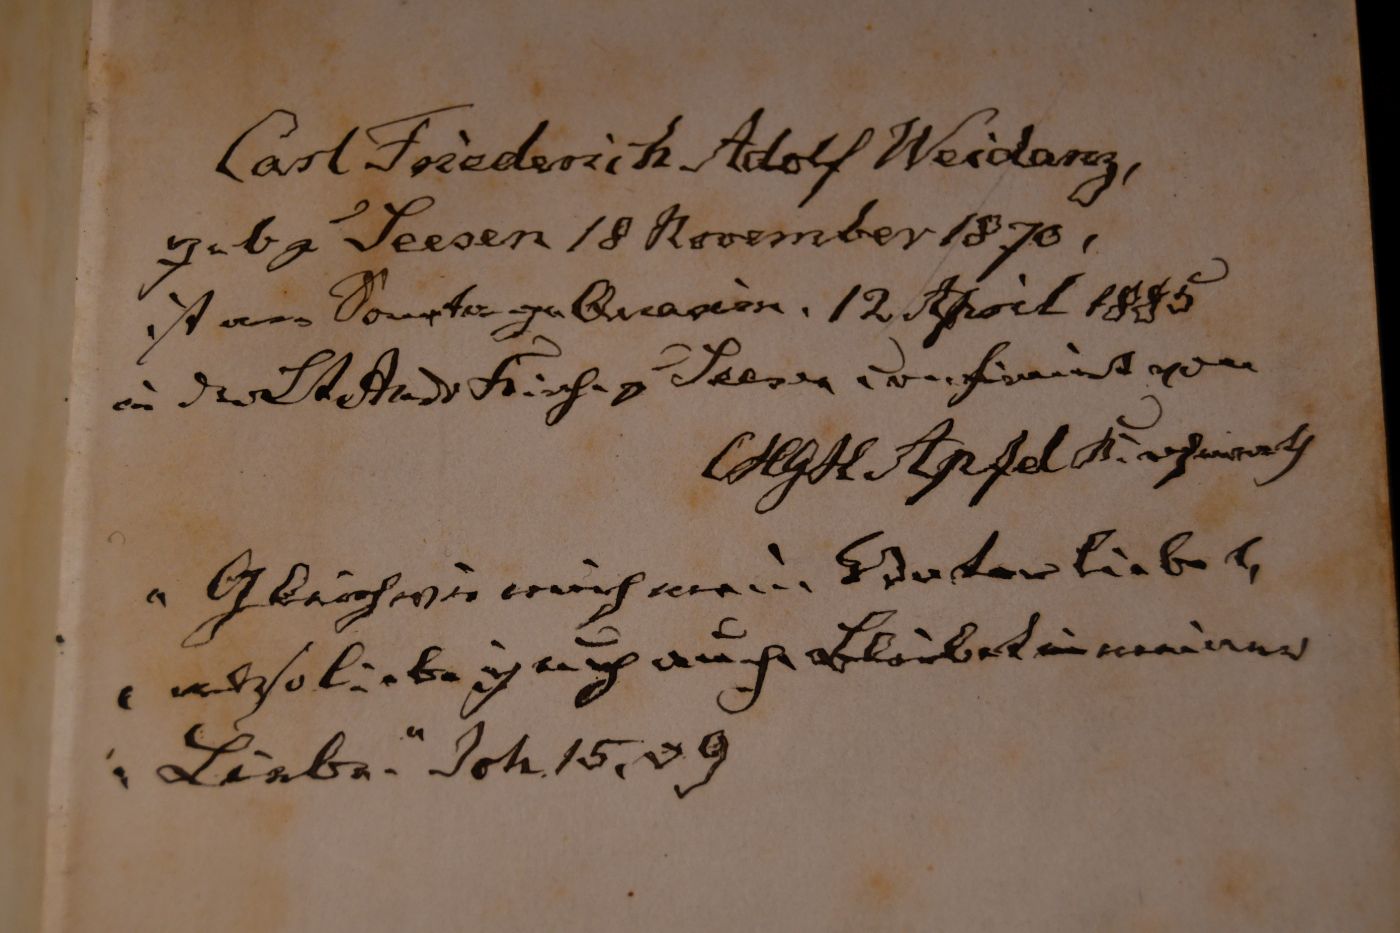 Carl Friederich Adolf Weidanz,
geb z Seesen 18 November 1870,
ist am Sonntage Quasim. 12 April 1885
in der St Andr Kirche z Seesen confirmirt von
CHGH Apfel
„Gleichwie mich mein Vater liebet,
„ also liebe ich euch auch. Bleibet in meiner
„ Liebe." Joh. 15, v 9